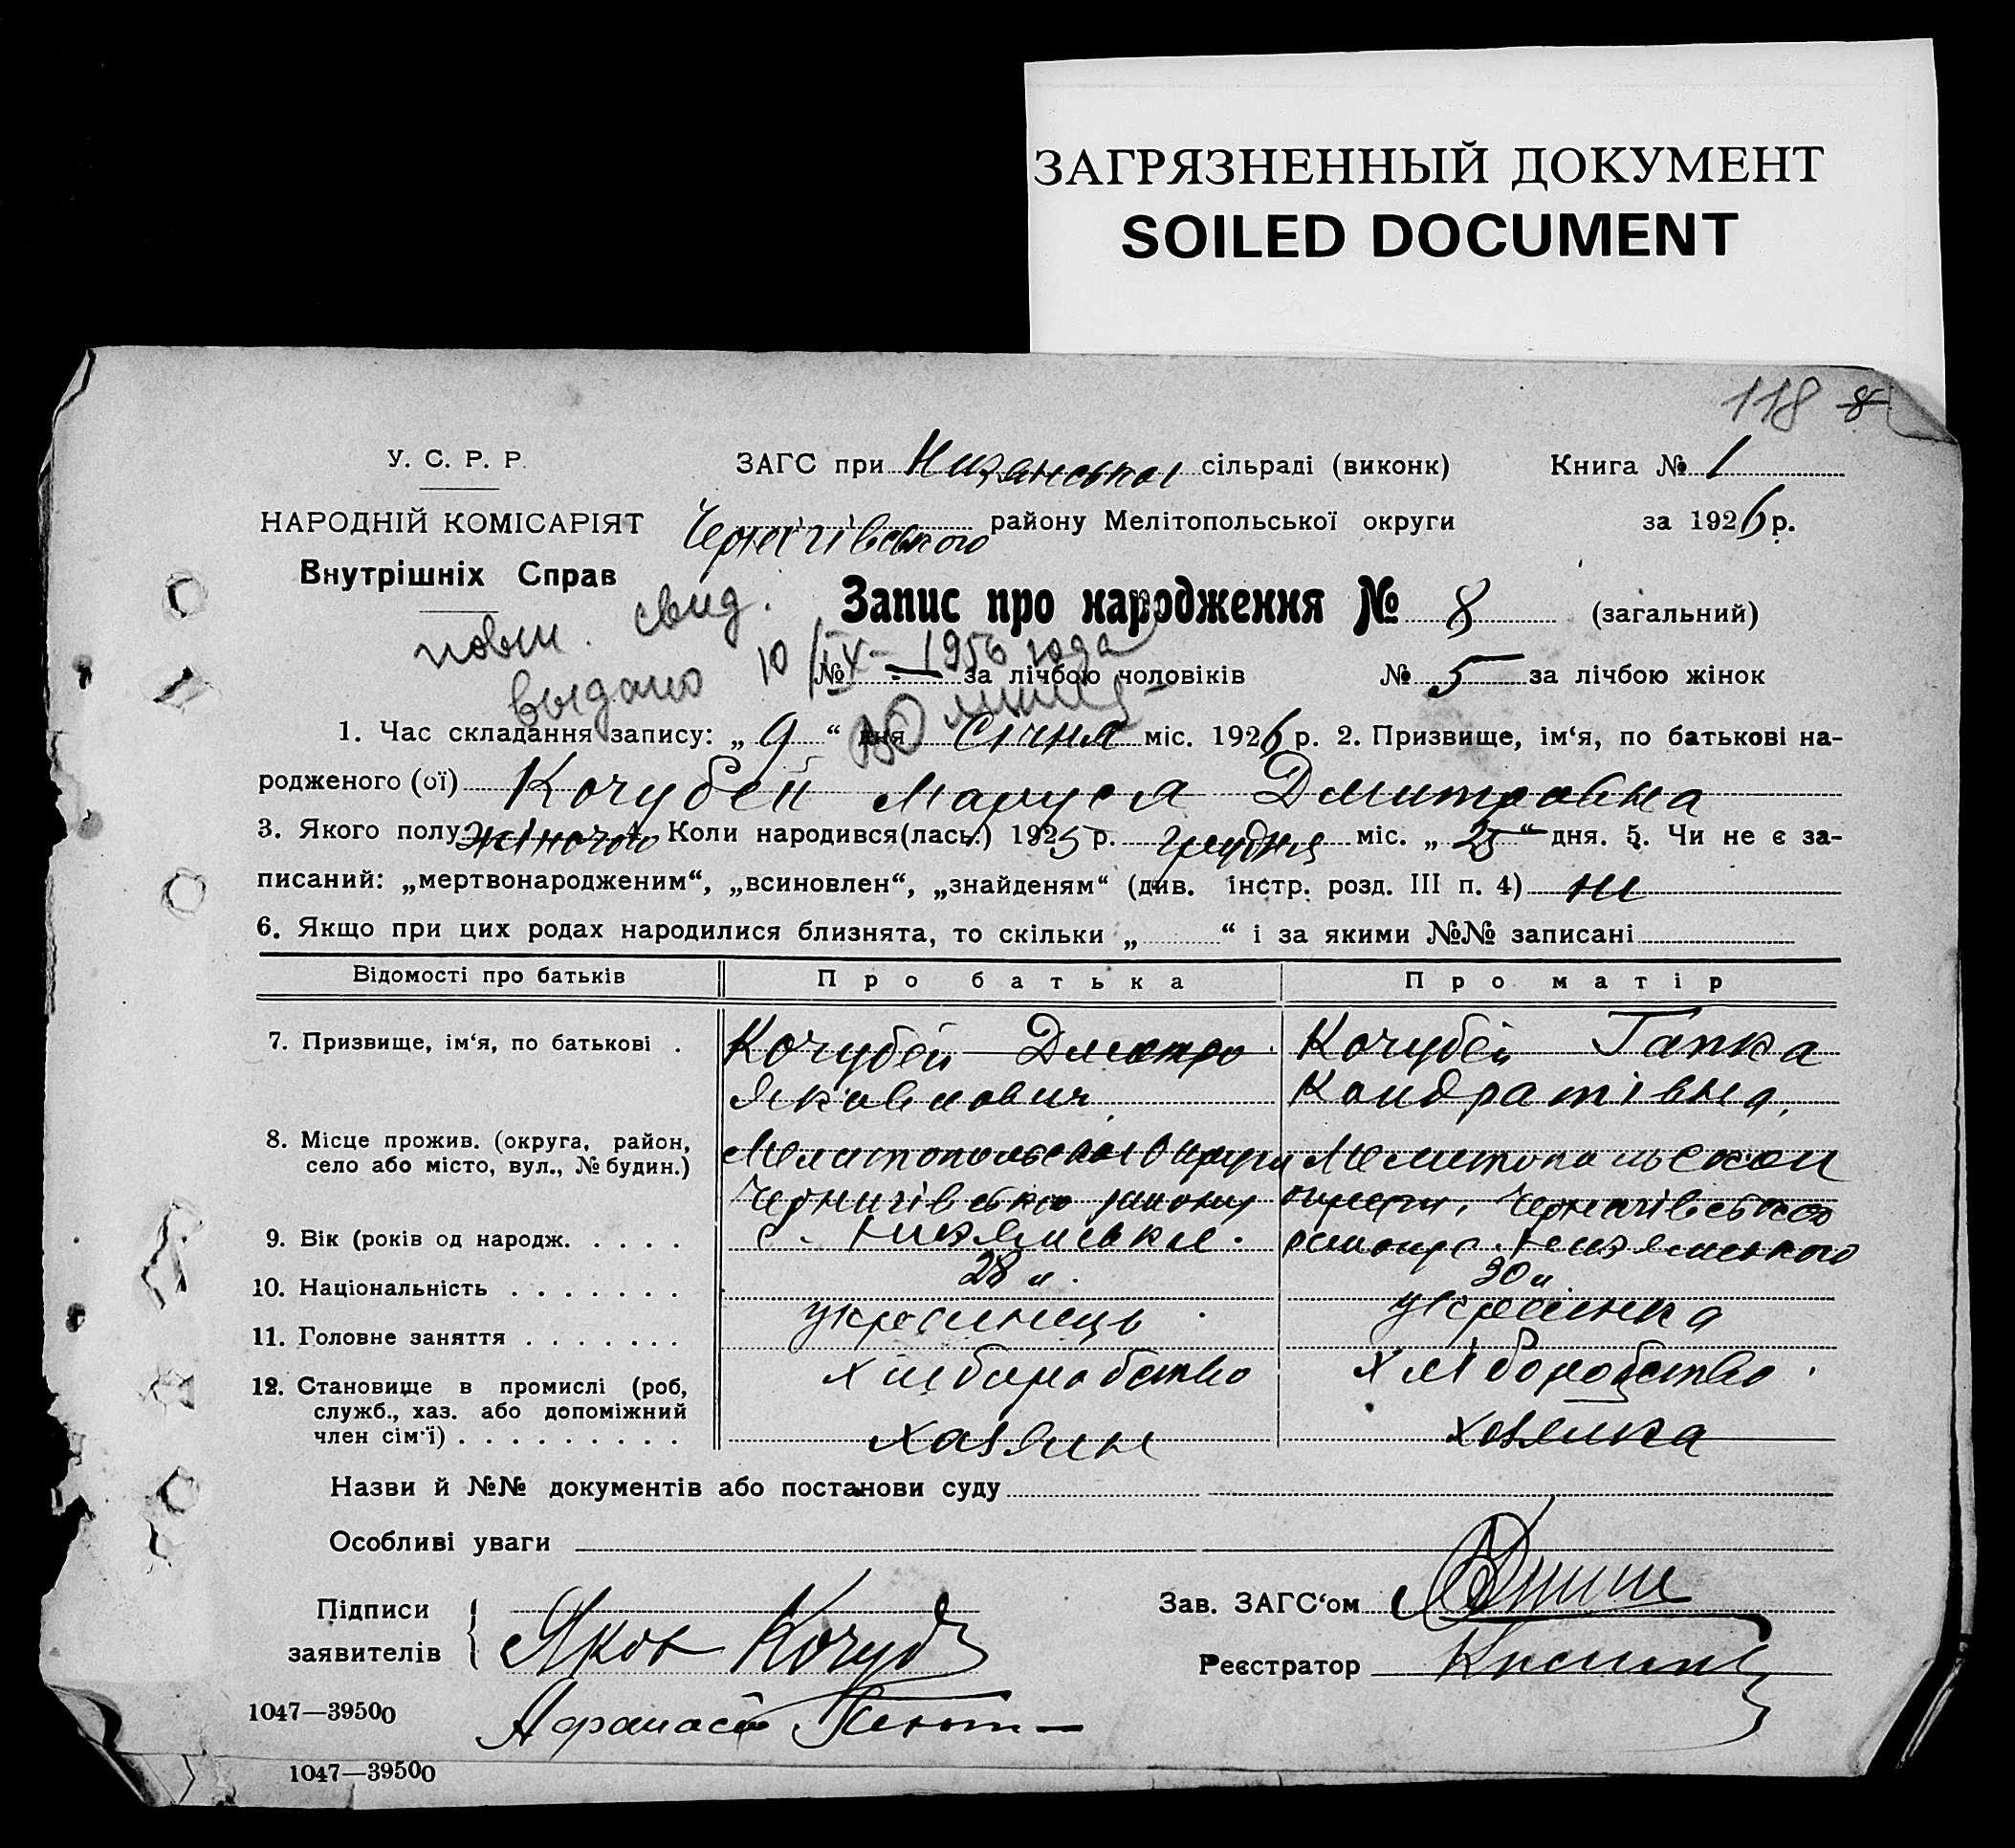 ЗАГРЯЗНЕННЫЙ ДОКУМЕНТ
SOILED DOCUMENT
118 8
У. С. Р. Р.
ЗАГС при сільраді (виконк) Книга № 1
НАРОДНІЙ КОМІСАРІЯТ
Чернігівського району Мелітопольської округи за 1926 р.
Внутрішніх Справ
Запис про народження № 8 (загальний)
повт. свид.
выдано 10/IX - 1956 года
№ — за лічбою чоловіків № 5 за лічбою жінок
1. Час складання запису: „ 9 “ дня Січня міс. 1926 р. 2. Призвище, ім‘я, по батькові на-
родженого (ої) Кочубей Маруся Дмитровна
3. Якого полу жіночого 4. Коли народився(лась.) 1925 р. грудня міс. „ 25 “ дня. 5. Чи не є за-
писаний: „мертвонародженим“, „всиновлен“, „знайденям“ (див. інстр. розд. III п. 4) ні
6. Якщо при цих родах народилися близнята, то скільки „ “ і за якими №№ записані
Відомості про батьків Про батька Про матір
7. Призвище, ім‘я, по батькові . Кочубей Дмитро Кочубей Гапка
Яковлович Кондратівна,
8. Місце прожив. (округа, район,
село або місто, вул., № будин.)
Мелитопольской Округи Мелитопольской
Чернигівського району округи, Чернигівського
9. Вік (років од народж. . . . .
28 л. 30 л.
10. Національність . . . . . . .
украинець украинка
11. Головне заняття . . . . . . .
хліборобство хліборобство
12. Становище в промислі (роб,
служб., хаз. або допоміжний
член сім‘ї) . . . . . . . . .
хазяин хозяика
Назви й №№ документів або постанови суду
Особливі уваги
Підписи
заявителів
Зав. ЗАГС‘ом
Яков Кочуб
Реєстратор
Афанасій
1047—39500
1047—39500